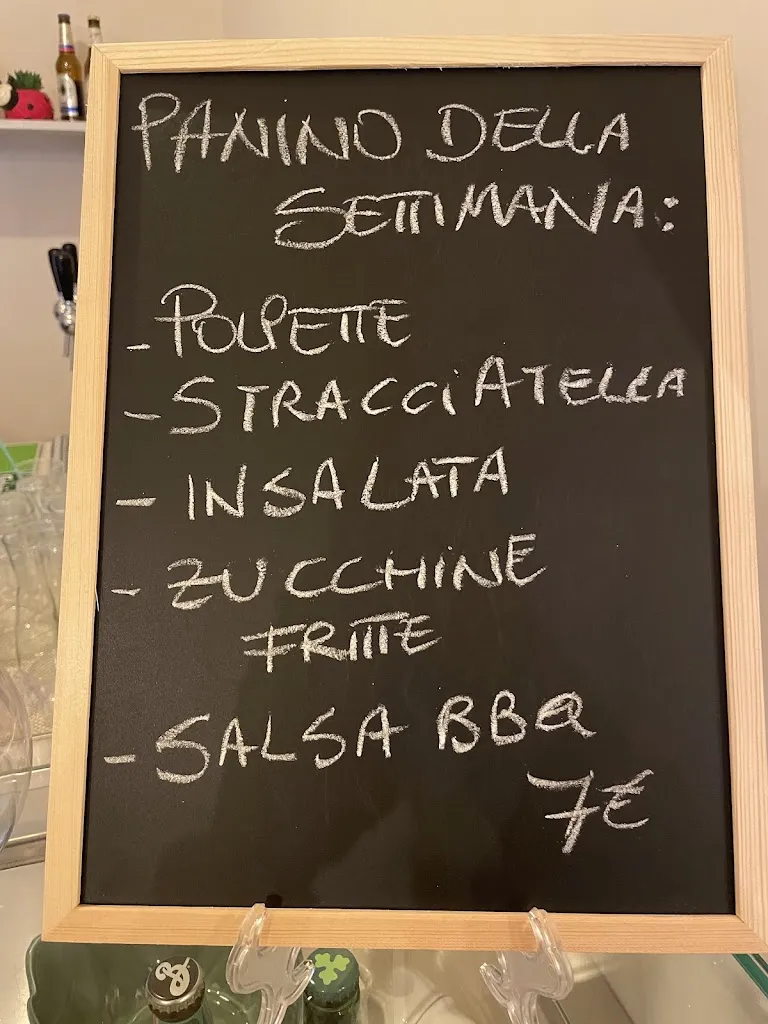 PANINO DELLA
SETTIMANA:
- POLPETTE
- STRACCIATELLA
- INSALATA
- ZUCCHINE
FRITTE
- SALSA BBQ
7€